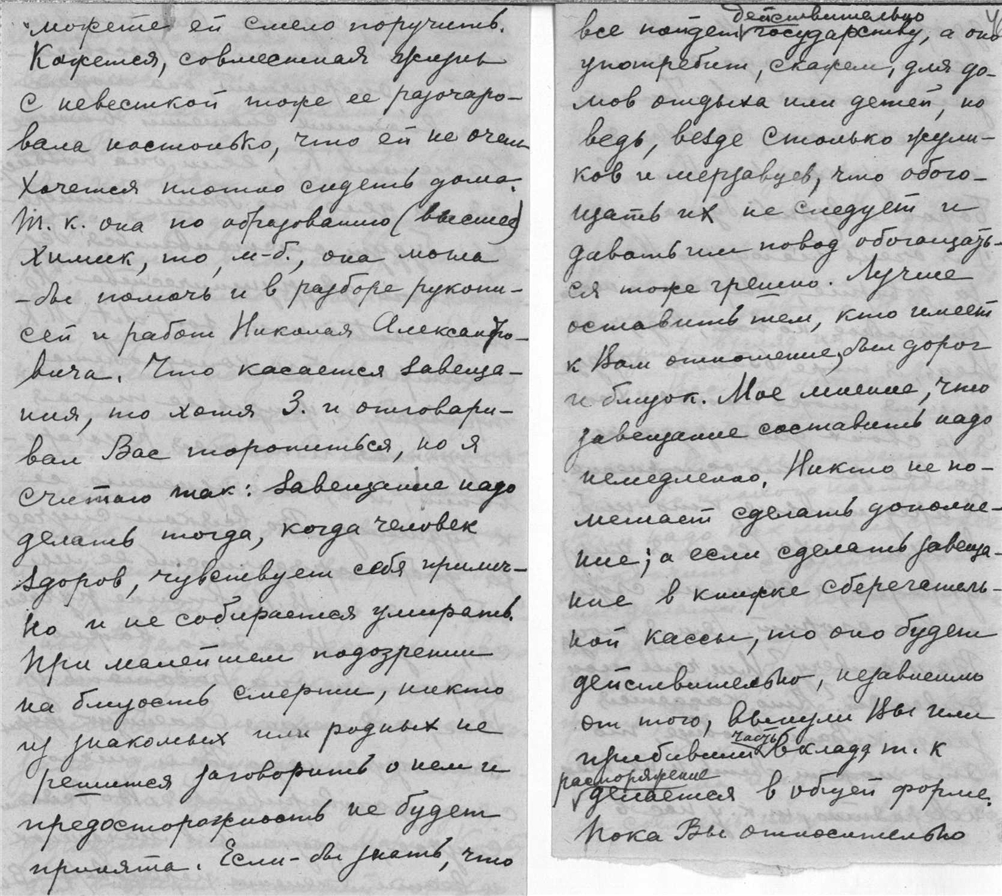 можете ей смело поручить.
Кажется, совместная жизнь
с невесткой тоже ее разочаро-
вала настолько, что ей не очень
хочется плотно сидеть дома.
Т. к. она по образованию (высшее)
химик, то, м-б., она могла
-бы помочь и в разборе рукопи-
сей и работ Николая Александро-
вича. Что касается завеща-
ния, то хотя З. и отговари-
вал Вас торопиться, но я
считаю так: завещание надо
делать тогда, когда человек
здоров, чувствует себя прилич-
но и не собирается умирать.
При малейшем подозрении
на близость смерти, никто
из знакомых или родных не
решится заговорить о нем и
предосторожность не будет
принята. Если-бы знать, что
все пойдет действительно государству, а оно
употребит, скажем, для до-
мов отдыха или детей, но
ведь, везде столько жули-
ков и мерзавцев, что обога-
щать их не следует и
давать им повод обогащать-
ся тоже грешно. Лучше
оставить тем, кто имеет
к Вам отношение, был дорог
и близок. Мое мнение, что
завещание составить надо
немедленно. Никто не по-
мешает сделать дополне-
ние; а если сделать завеща-
ние в книжке сберегатель-
ной кассы, то оно будет
действительно, независимо
от того, вынули Вы или
прибавили часть вклада, т. к
распоряжение делается в общей форме.
Пока Вы относительно